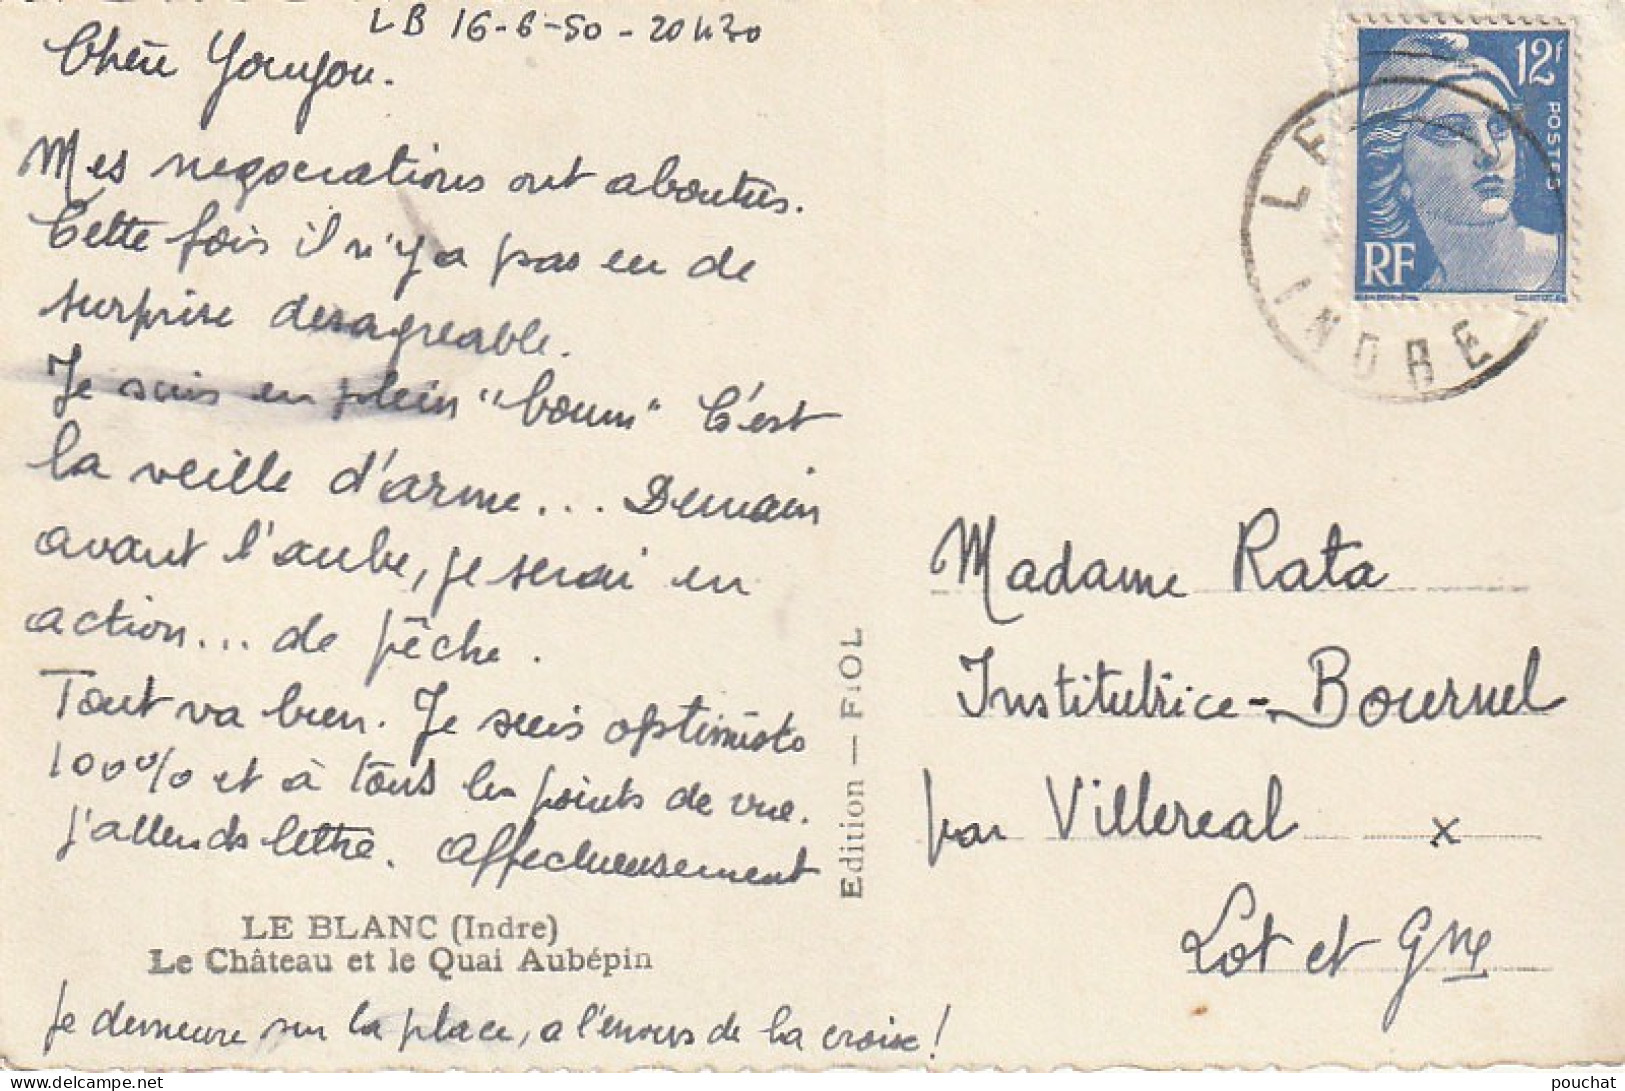 LB 16-6-50 - 20h30
Chère Youyou.
Mes negociations ont abouties.
Cette fois il n'y a pas eu de
surprise desagreable.
Je suis en plein "boum" C'est
la veille d'arme... Demain
avant l'aube, je serai en
action... de pêche.
Tout va bien. Je suis optimiste
100% et à tous les points de vue.
J'attends lettre. Affectueusement
LE BLANC (Indre)
Le Château et le Quai Aubépin
Je demeure sur la place, a l'envers de la croix!
Edition — FIOL
12F
POSTES
RF
LE
INDRE
Madame Rata
Institutrice - Bournel
par Villereal x
Lot et Gne
pouchat